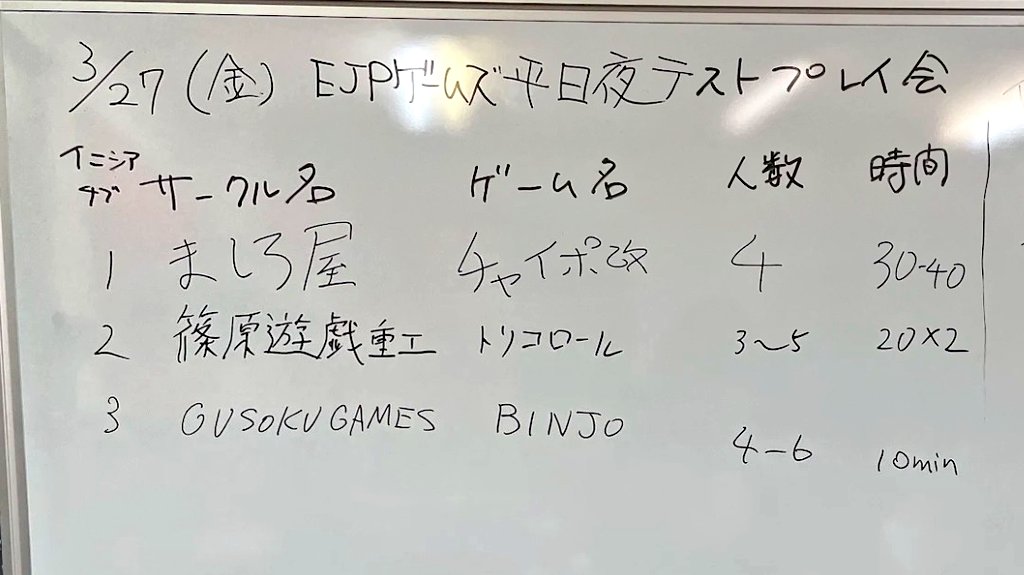 3/27(金) EJPゲームズ平日夜テストプレイ会
イニシアチブ サークル名 ゲーム名 人数 時間
1 ましろ屋 チャイポ改 4 30-40
2 篠原遊戯重工 トリコロール 3～5 20×2
3 GUSOKUGAMES BINJO 4-6 10min